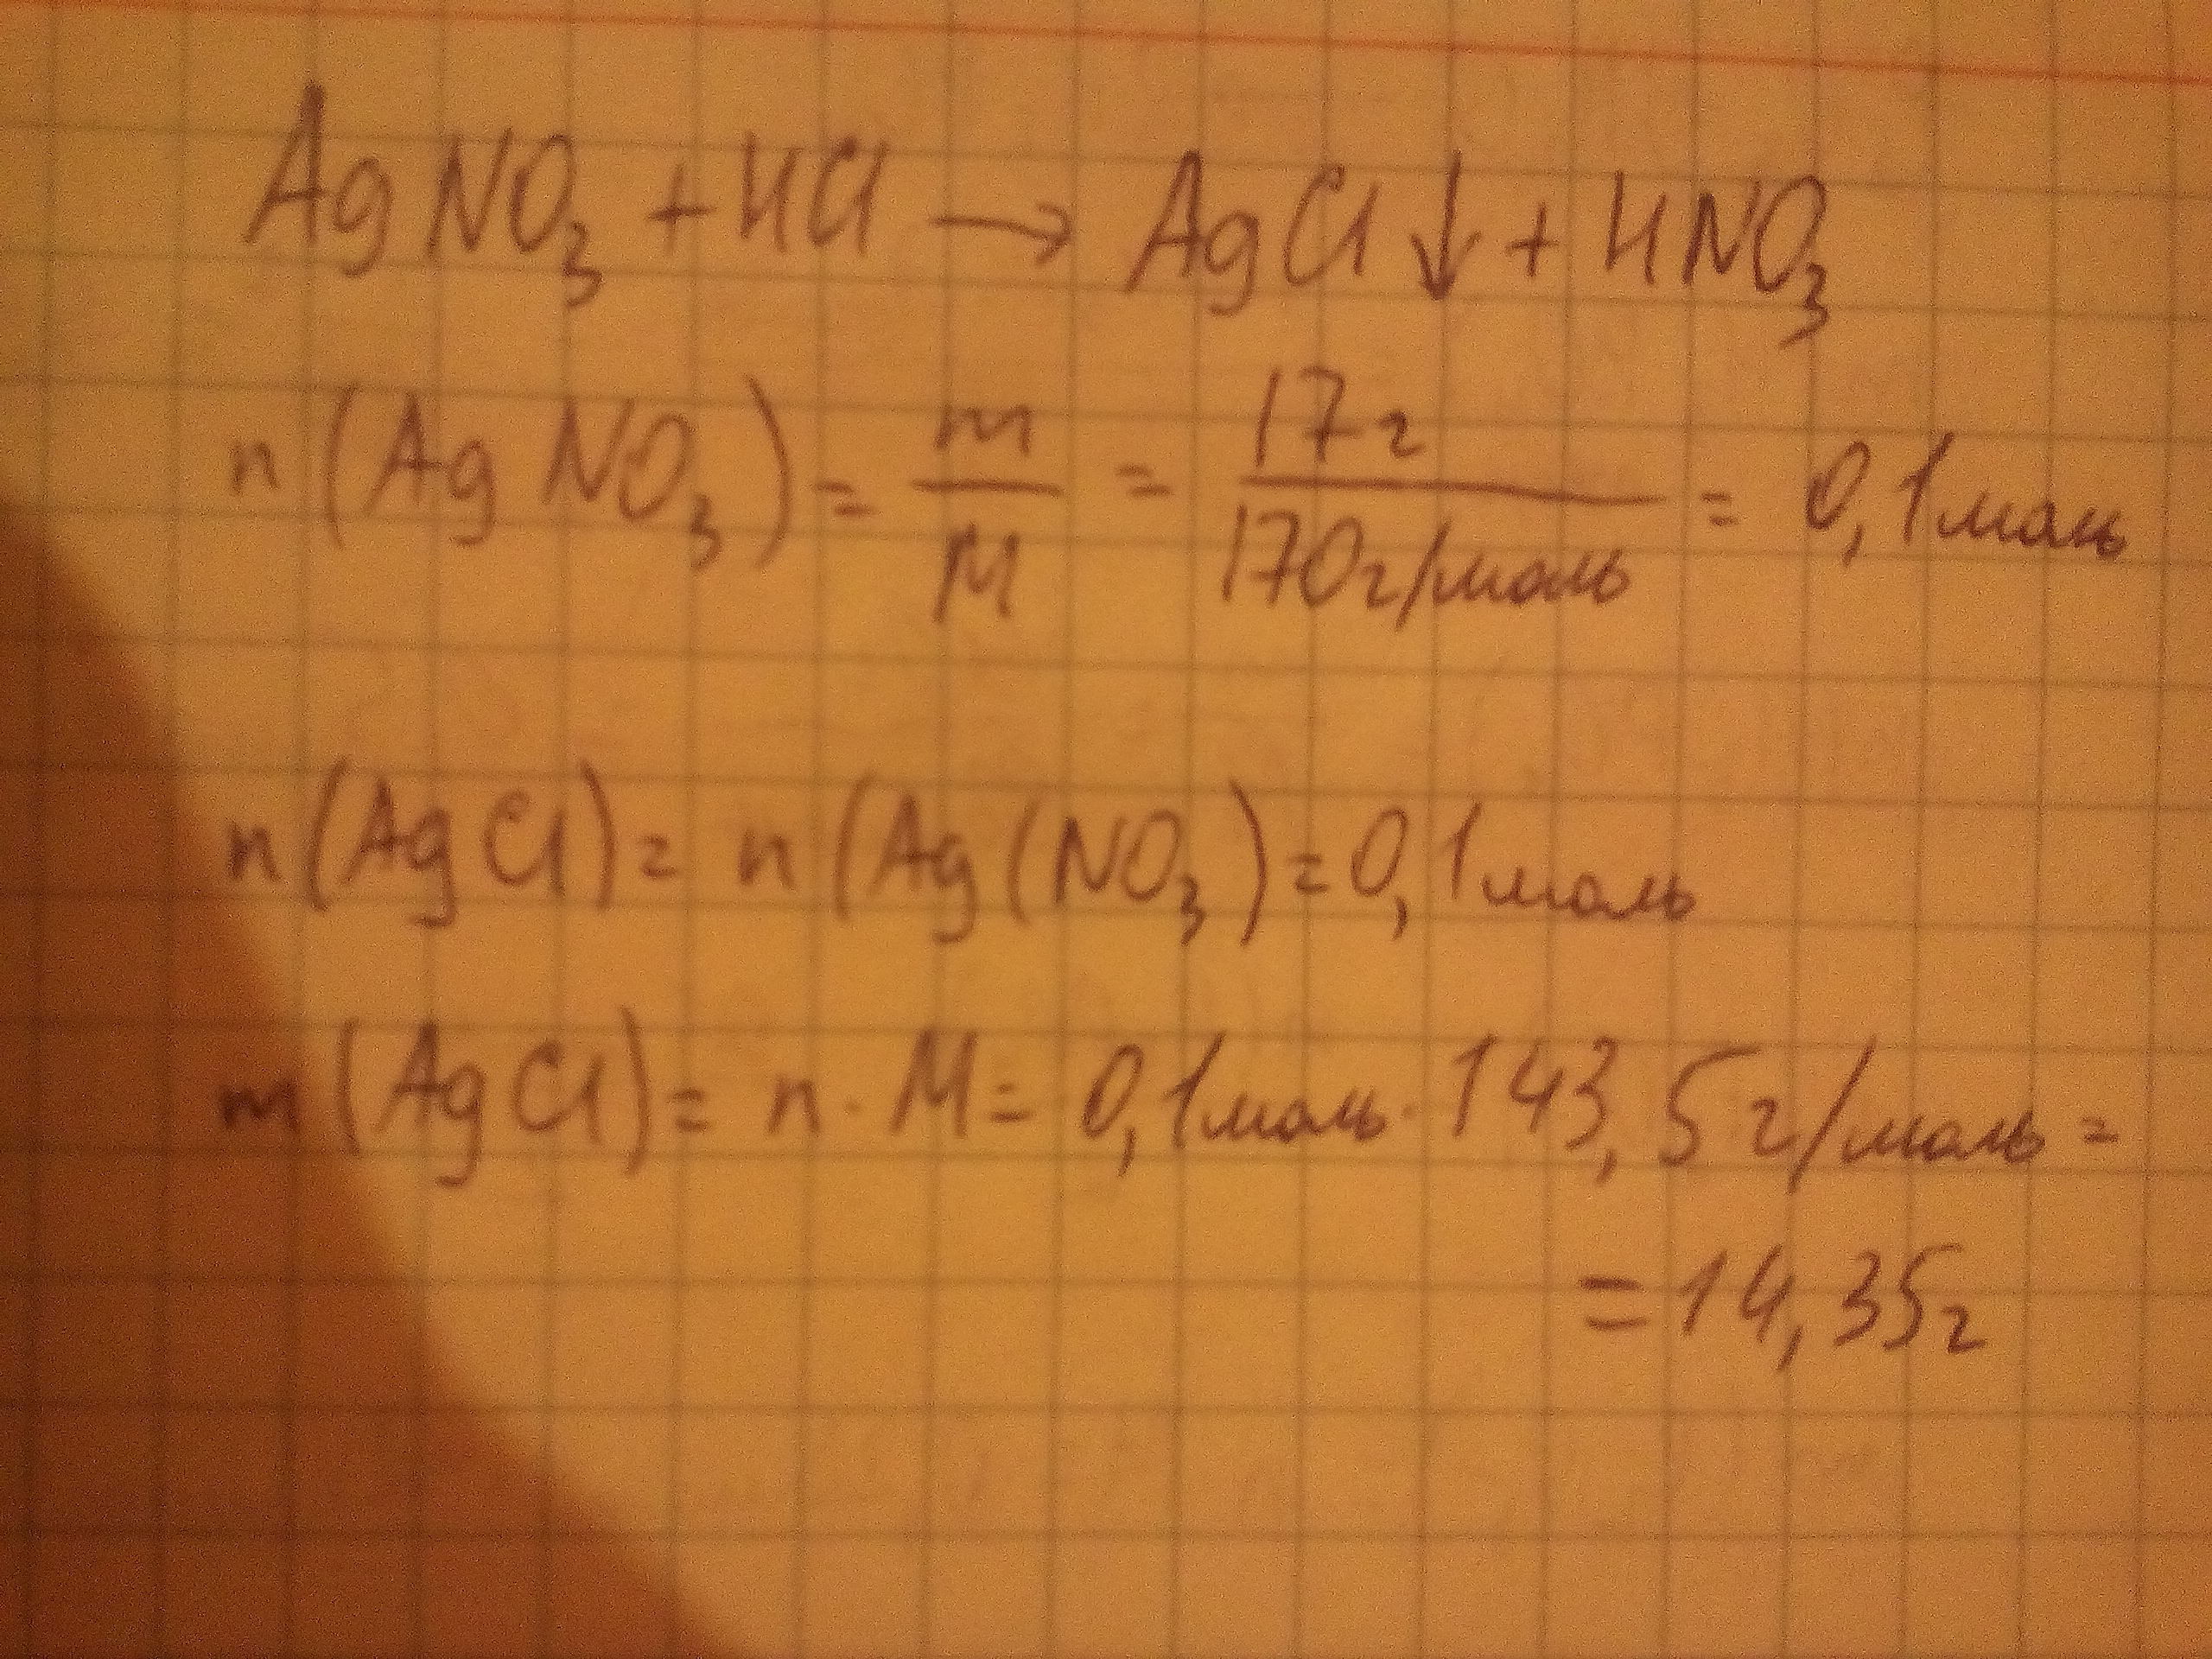 AgNO₃ + HCl → AgCl↓ + HNO₃
n(AgNO₃) = m/M = 17г/170г/моль = 0,1моль
n(AgCl) = n(Ag(NO₃) = 0,1моль
m(AgCl) = n · M = 0,1моль · 143,5г/моль =
= 14,35г